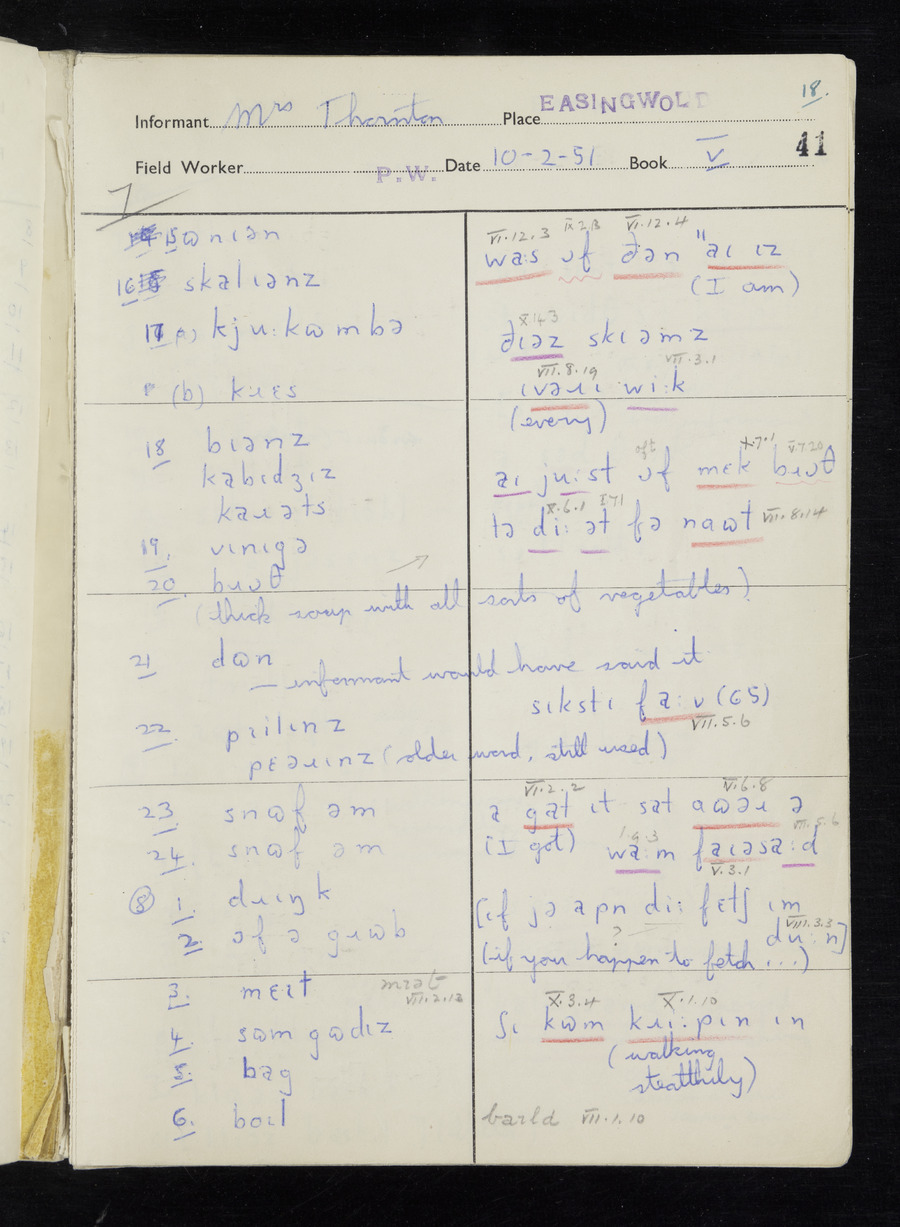 18.
Informant Mrs Thornton Place EASINGWOLD
41
Field Worker P.W. Date 10-2-51 Book V
7
15 ɷnɩən
16 skalɩənz
17 (a) kjuːkɷmbə
(b) kɹɛs
18 bɪənz
kabɪdʒɪz
kaɹəts
19. vɪnɪgə
20. bɹʋθ
(thick soup with all sorts of vegetables)
21 dɷn
— informant would have said it
22. pɪɪlɪnz
pɛəɹɪnz (older word, still used)
23. snɷf əm
24. snɷf əm
8 1. dɹɪŋk
2. ɔf ə gɹɷb
3. mɛɪt mɪət VII.2.12
4. sɷm gɷdɪz
5. bag
6. bɔɪl
VI.12.3 IX.2.13 VI.12.4
waːs ɔf ðən "aɪ ɪz
(I am)
X.14.3
ðɪəz skɪəmz
VII.8.19 VII.3.1
ɪvəɹɪ wiːk
(every)
oft X.7.1 V.7.20
aɪ juːst ɔf mɛk bɹʋθ
X.6.1 I.7.1
tə diː ət fə naɷt VII.8.14
sɪkstɪ faːv (65)
VII.5.6
VI.2.2 VI.6.8
a gat ɪt sat aɷəɹ ə
(I got) 1.9.3 VII.5.6
waːm faɪəsaːd
V.3.1
[ɪf jə apn diː fɛtʃ ɪm
? VIII.3.3
duːn]
(if you happen to fetch ...)
X.3.4 X.1.10
ʃɪ kɷm kɹiːpɪn ɪn
(walking
stealthily)
baɪld VII.1.10